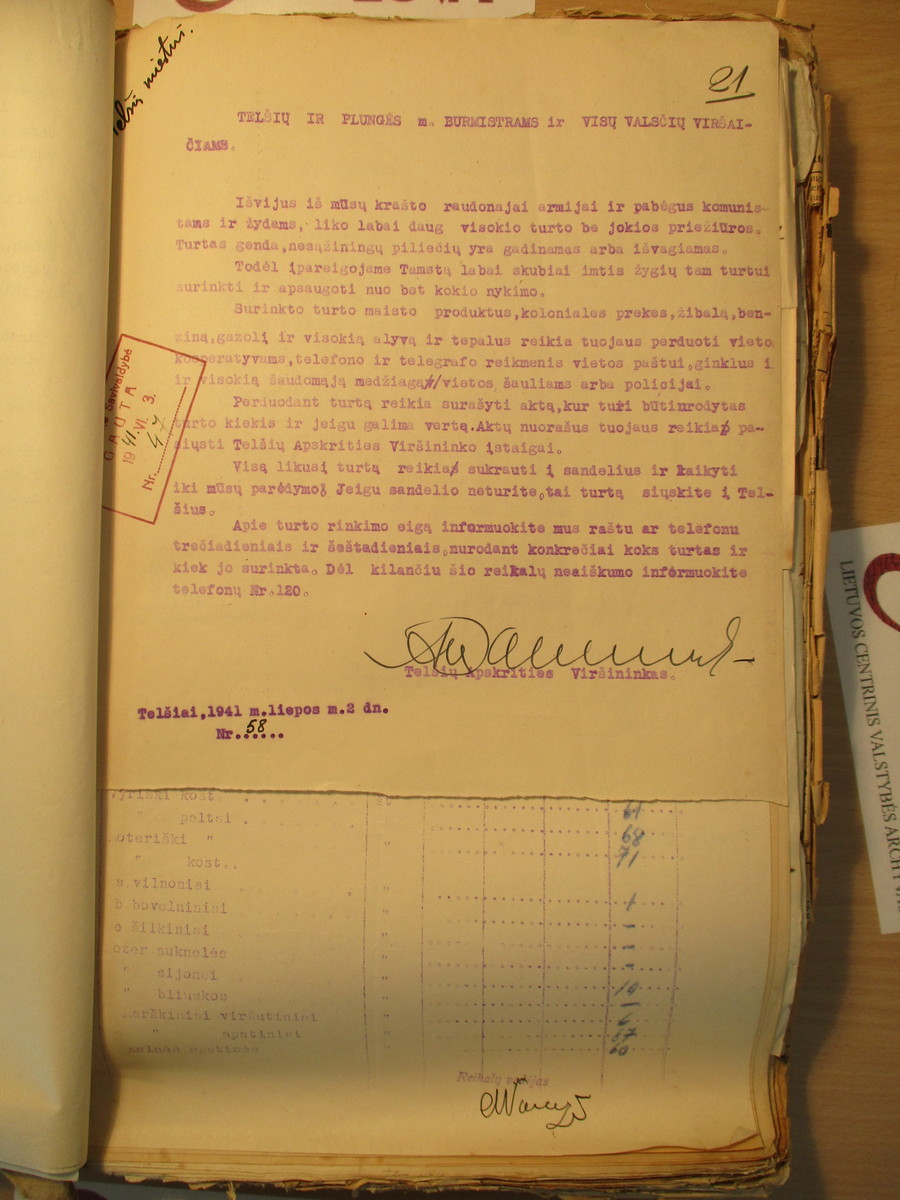 miestui.
21
TELŠIŲ IR PLUNGĖS m. BURMISTRAMS ir VISŲ VALSČIŲ VIRŠAI-
ČIAMS.
Išvijus iš mūsų krašto raudonajai armijai ir pabėgus komunis-
tams ir žydams, liko labai daug visokio turto be jokios priežiūros.
Turtas genda,nesąžiningų piliečių yra gadinamas arba išvagiamas.
Todėl įpareigojame Tamstą labai skubiai imtis žygių tam turtui
surinkti ir apsaugoti nuo bet kokio nykimo.
Surinkto turto maisto produktus,koloniales prekes,žibalą,ben-
ziną,gazolį ir visokią alyvą ir tepalus reikia tuojaus perduoti vieto
kooperatyvams,telefono ir telegrafo reikmenis vietos paštui,ginklus i
ir visokią šaudomąją medžiagą/vietos šauliams arba policijai.
Perduodant turtą reikia surašyti aktą,kur turi būtiurodytas
turto kiekis ir jeigu galima vertą.Aktų nuorašus tuojaus reikia pa-
siųsti Telšių Apskrities Viršininko įstaigai.
Visą likusį turtą reikia sukrauti į sandelius ir laikyti
iki mūsų parėdymo! Jeigu sandelio neturite,tai turtą siųskite į Tel-
šius.
Apie turto rinkimo eigą informuokite mus raštu ar telefonu
trečiadieniais ir šeštadieniais,nurodant konkrečiai koks turtas ir
kiek jo surinkta. Dėl kilančiu šio reikalų neaiškumo informuokite
telefonų Nr.120.
Telšių Apskrities Viršininkas.
Telšiai,1941 m.liepos m.2 dn.
Nr.58......
Savivaldybė
GAUTA
1941.VI.3.
Nr. 47
vyriški kost. st
" paltai 61
moteriški " " 68
" kost.. 71
a vilnoniai "
b bovelniniai " 1
c šilkiniai " -
suknelės " -
" sijonai " -
" bliuskos " 19
viršutiniai " 6
" apatiniai " 87
apatinės " 60
Reikalų vedėjas
LIETUVOS CENTRINIS VALSTYBĖS ARCHYVAS